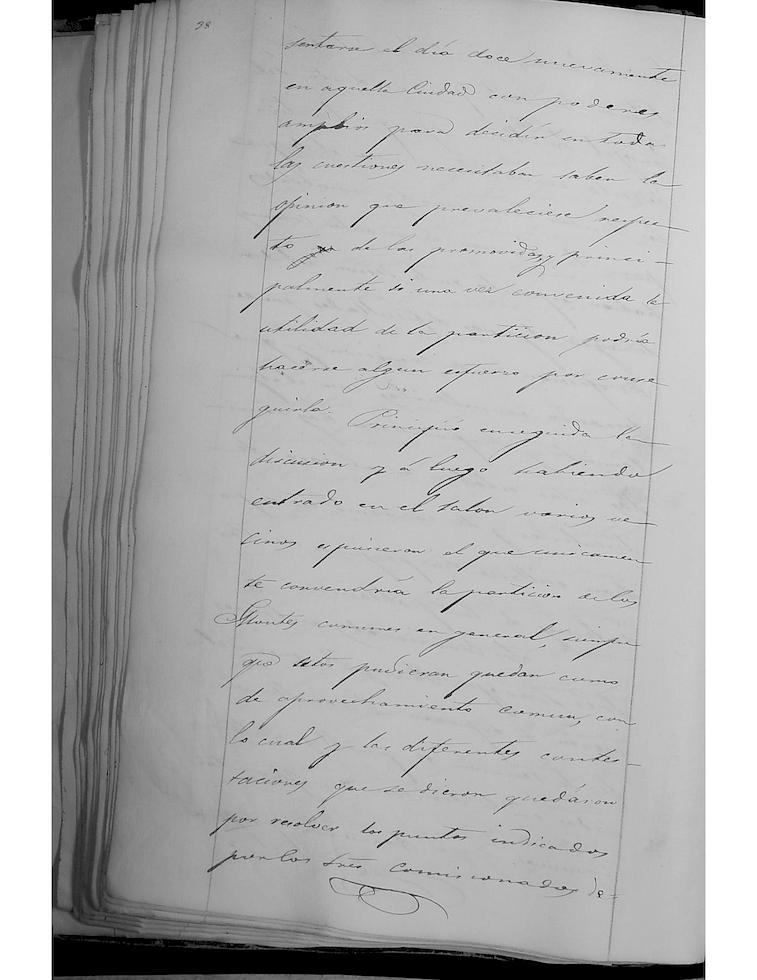 98
sentarse el día doce nuevamente
en aquella Ciudad con poderes
amplios para decidir en todas
las cuestiones necesitaban saber la
opinion que prevaleciese respec-
to de las promovidas y princi-
palmente si una vez convenida la
utilidad de la particion podría
hacerse algun esfuerzo por conse
guirla. Principió enseguida la
discusion y á luego habiendo
entrado en el salon varios ve
cinos espusieron el que unicamen
te convendría la particion de los
Montes comunes en general, siempre
que estos pudieran quedar como
de aprovechamiento comun, con
lo cual y las diferentes contes-
taciones que se dieron quedáron
por resolver los puntos indicados
por los tres comisionados de-